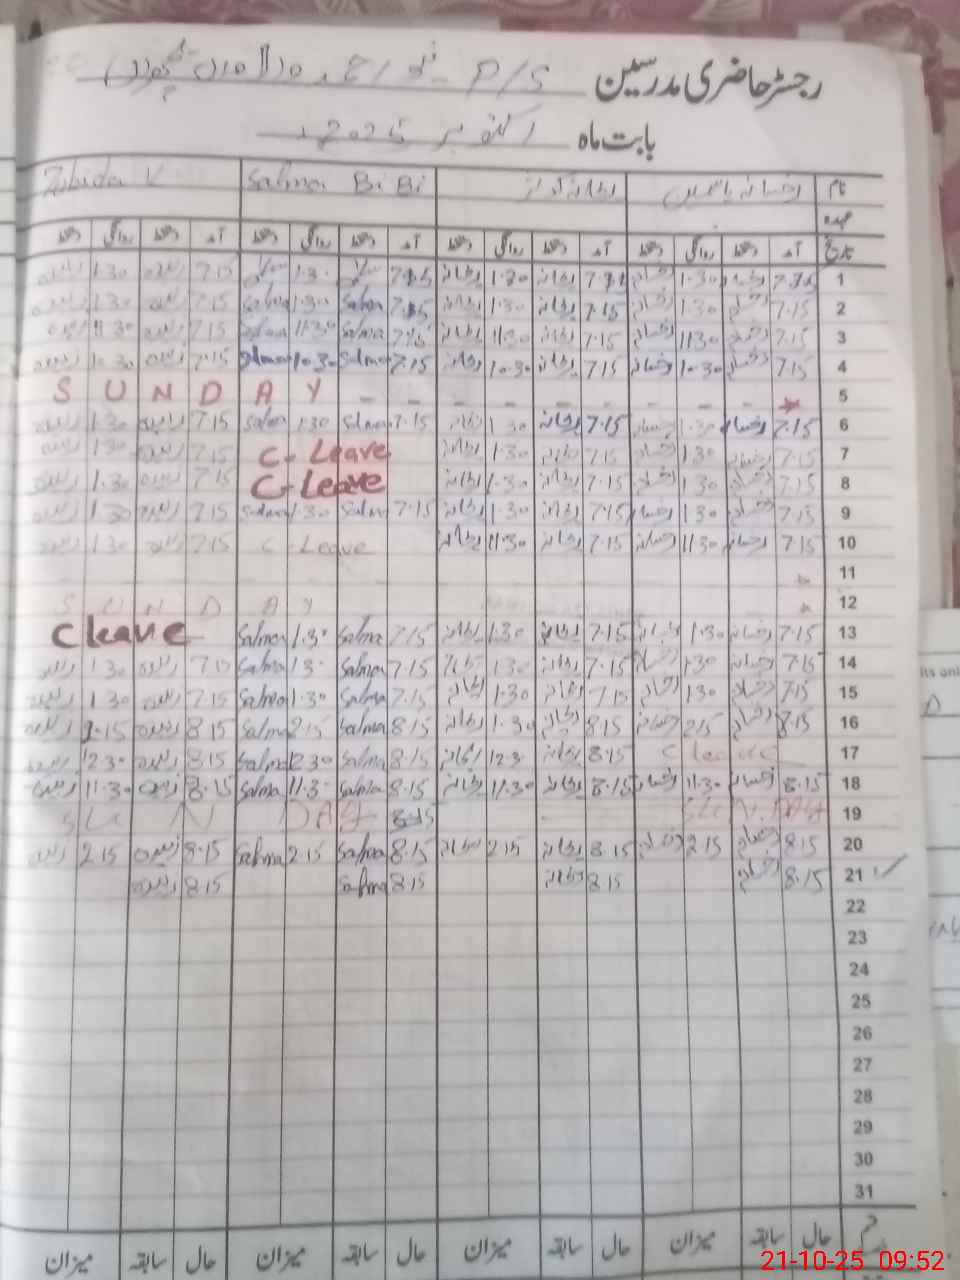 رجسٹر حاضری مدرسین P/S
بابت ماہ اکتوبر 2025
نام رخسانہ یاسمین ریحانہ Salma BiBi Zubida K
عہدہ
تاریخ آمد دستخط روانگی دستخط آمد دستخط روانگی دستخط آمد دستخط روانگی دستخط آمد دستخط روانگی دستخط
1 رخسانہ 1.30 رخسانہ ریحانہ 1.30 ریحانہ 1.30 7.15 زبیدہ 1.30 زبیدہ
2 7.15 رخسانہ 1.30 رخسانہ 7.15 ریحانہ 1.30 ریحانہ 7.15 Salma 1.30 Salma 7.15 زبیدہ 1.30 زبیدہ
3 7.15 رخسانہ 11.30 رخسانہ 7.15 ریحانہ 11.30 ریحانہ 7.15 Salma 11.30 Salma 7.15 زبیدہ 11.30 زبیدہ
4 7.15 رخسانہ 10.30 رخسانہ 7.15 ریحانہ 10.30 ریحانہ 7.15 Salma 10.30 Salma 7.15 زبیدہ 10.30 زبیدہ
5 S U N D A Y
6 7.15 رخسانہ 1.30 رخسانہ 7.15 ریحانہ 1.30 ریحانہ 7.15 Salma 1.30 Salma 7.15 زبیدہ 1.30 زبیدہ
7 7.15 رخسانہ 1.30 رخسانہ 7.15 ریحانہ 1.30 ریحانہ C-Leave 7.15 زبیدہ 1.30 زبیدہ
8 7.15 رخسانہ 1.30 رخسانہ 7.15 ریحانہ 1.30 ریحانہ C-Leave 7.15 زبیدہ 1.30 زبیدہ
9 7.15 رخسانہ 1.30 رخسانہ 7.15 ریحانہ 1.30 ریحانہ 7.15 Salma 1.30 Salma 7.15 زبیدہ 1.30 زبیدہ
10 7.15 رخسانہ 11.30 رخسانہ 7.15 ریحانہ 11.30 ریحانہ C-Leave 7.15 زبیدہ 1.30 زبیدہ
11
12 S U N D A Y
13 7.15 رخسانہ 1.30 رخسانہ 7.15 ریحانہ 1.30 ریحانہ 7.15 Salma 1.30 Salma C leave
14 7.15 رخسانہ 1.30 رخسانہ 7.15 ریحانہ 1.30 ریحانہ 7.15 Salma 1.3 Salma 7.15 زبیدہ 1.30 زبیدہ
15 7.15 رخسانہ 1.30 رخسانہ 7.15 ریحانہ 1.30 ریحانہ 7.15 Salma 1.30 Salma 7.15 زبیدہ 1.30 زبیدہ
16 8.15 رخسانہ 2.15 رخسانہ 8.15 ریحانہ 1.30 ریحانہ 8.15 Salma 2.15 Salma 8.15 زبیدہ 2.15 زبیدہ
17 C leave 8.15 ریحانہ 12.3 ریحانہ 8.15 Salma 12.30 Salma 8.15 زبیدہ 12.30 زبیدہ
18 8.15 رخسانہ 11.30 رخسانہ 8.15 ریحانہ 11.30 ریحانہ 8.15 Salma 11.3 Salma 8.15 زبیدہ 11.30 زبیدہ
19 SUNDAY 8.15 SUNDAY
20 8.15 رخسانہ 2.15 رخسانہ 8.15 ریحانہ 2.15 ریحانہ 8.15 Salma 2.15 Salma 8.15 زبیدہ 2.15 زبیدہ
21 8.15 رخسانہ 8.15 ریحانہ 8.15 Salma 8.15 زبیدہ
22
23
24
25
26
27
28
29
30
31
حال سابقہ میزان حال سابقہ میزان حال سابقہ میزان حال سابقہ میزان
21-10-25 09:52